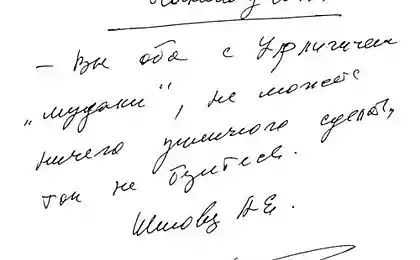 – Вы оба с Урличичем
„мудаки“, не можете
ничего умничого сделать,
так не
Шиловец А.Е.